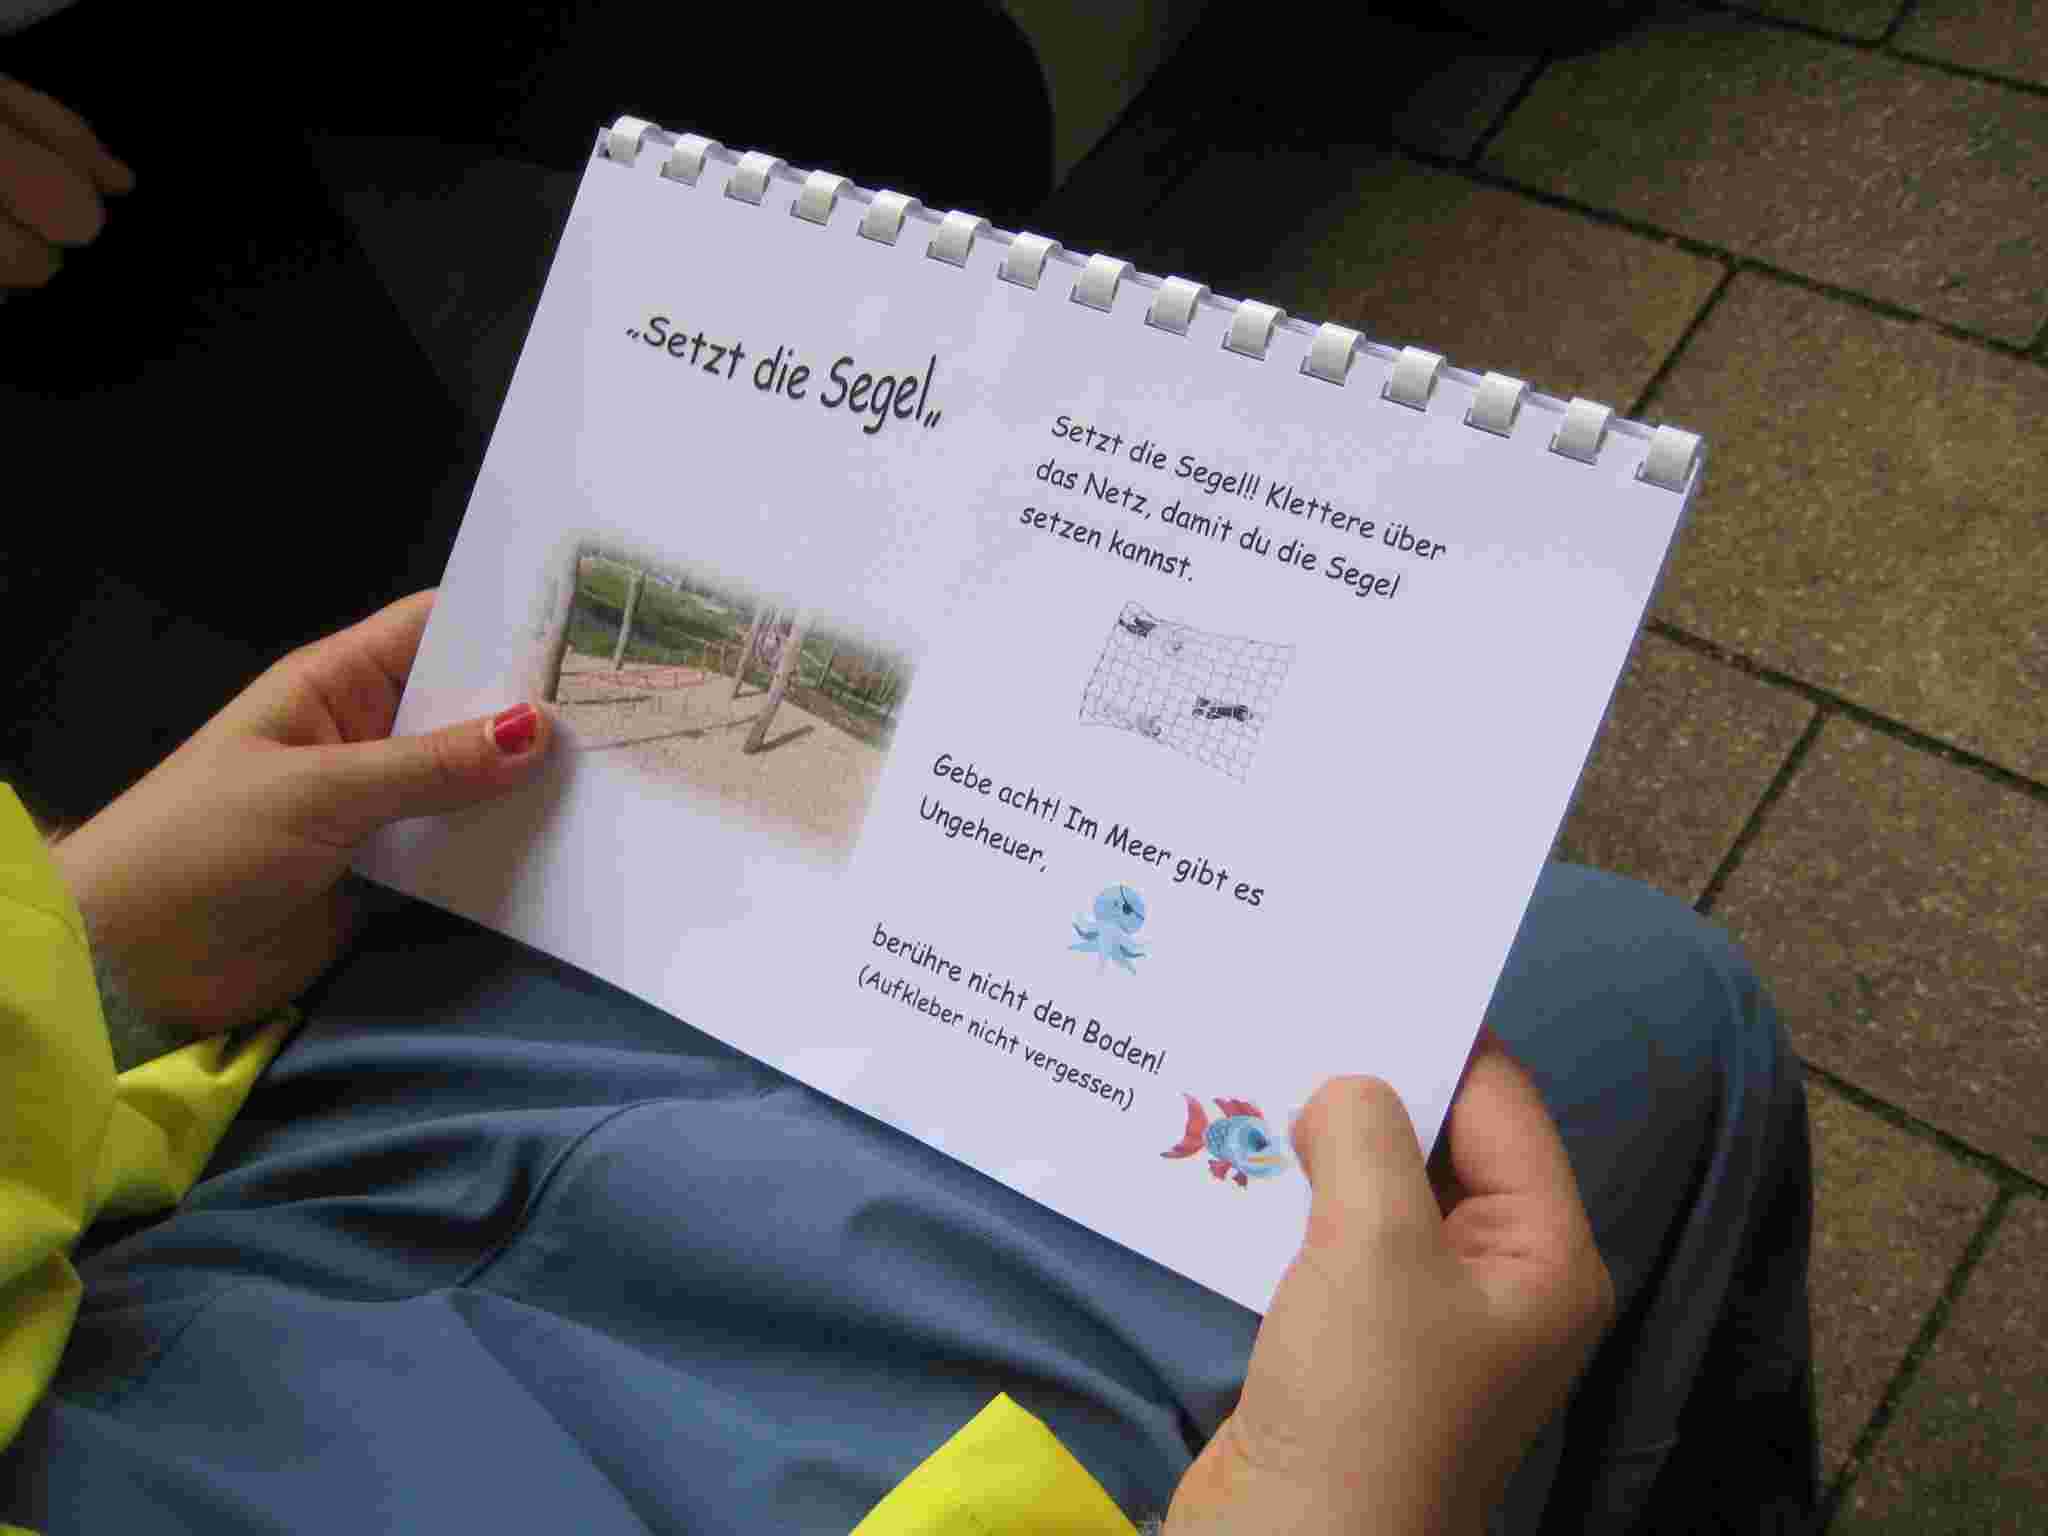 „Setzt die Segel„
Setzt die Segel!! Klettere über
das Netz, damit du die Segel
setzen kannst.
Gebe acht! Im Meer gibt es
Ungeheuer,
berühre nicht den Boden!
(Aufkleber nicht vergessen)